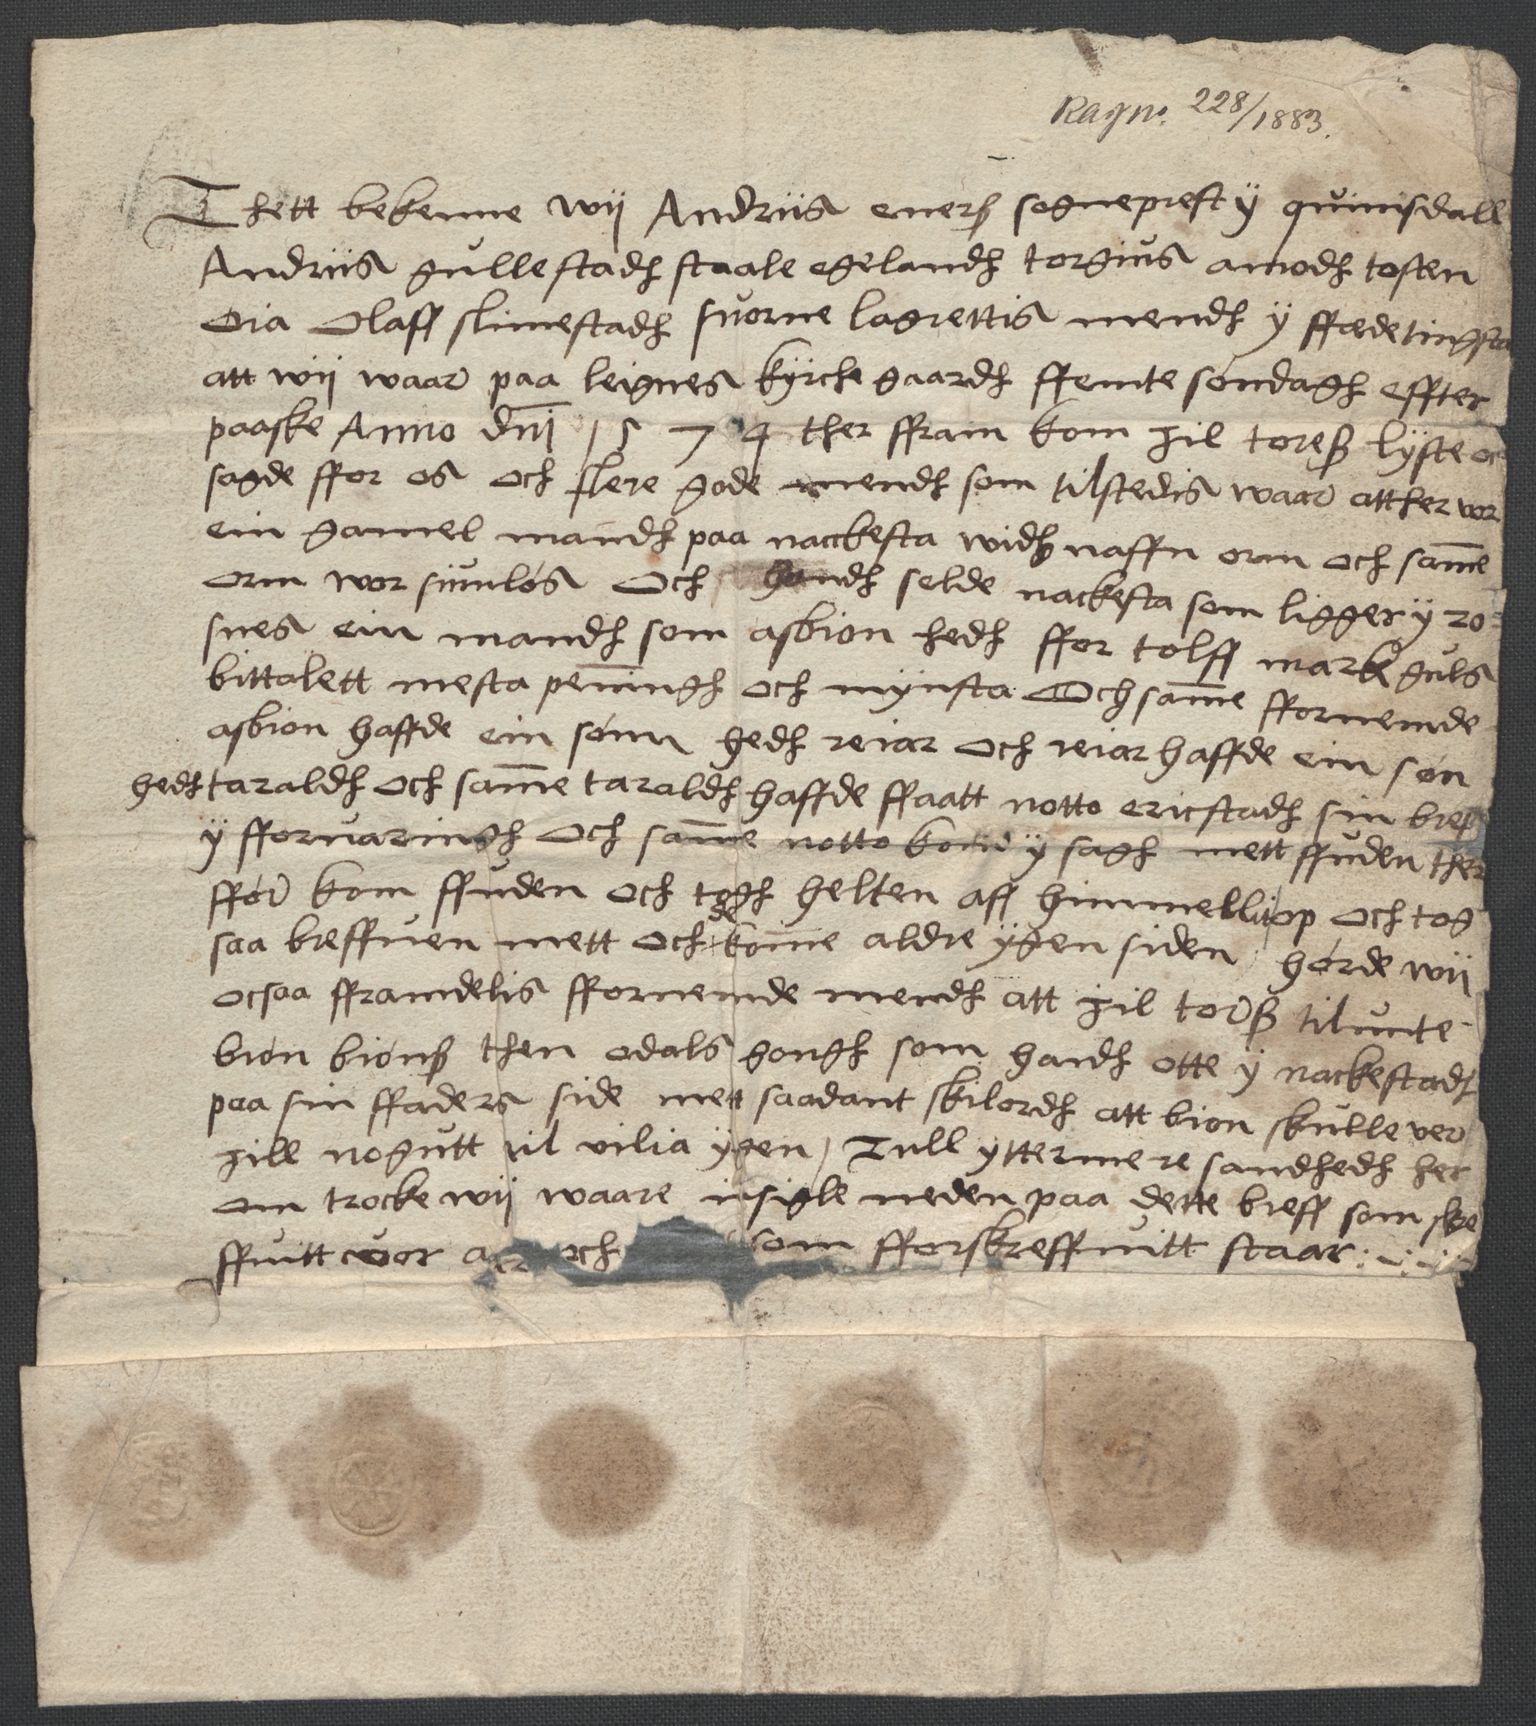 Ragno. 228/1883.
Thett bekenne wij Andriis enerß sogneprest ÿ quinisdall
Andriis gullestadh staale egelandh torgius amodh tosten
Oia Olaff slimestadh suorne lagrettis mendh ÿ ffædetingsta
att wij waar paa leignes kÿrche gaardh ffemte søndagh effter
paaske Anno dni 1574 ther ffram kom jil toreß lÿste oc
sagde ffor os och flere gode mendh som tilstedis waar att ther vor
ein gamel mandh paa nackesta widh naffn orm och same
orm wor siunløs och handh selde nackesta som ligger ÿ ro=
snes ein mandh som asbion hedh ffor tolff mark guls
bittalett mesta peningh och mÿnsta Och same ffornemde
asbion haffde ein sønn hedh reiar och reiar haffde ein søn
hedh taraldh och same taraldh haffde ffaatt notto ericstadh sin breff
ÿ fforuaringh och same notto kom ÿ sagh mett ffuden ther
ffor kom ffuden och togh helten aff himmellüop och tog
saa breffuen mett och de kome aldre ÿgen siden hørde wij
ocsaa fframdelis ffornemde mendh att jil torß til unte
biøn biønß then odals gongh som handh otte ÿ nackestadh
paa sin ffaders side mett saadant skilordh att bion skulle ver
jill nogutt til vilia ÿgen / Till yttermere sandhedh her
om trocke wij waare insigle neden paa dette breff som skre
ffuitt vor och som fforskreffuitt staar